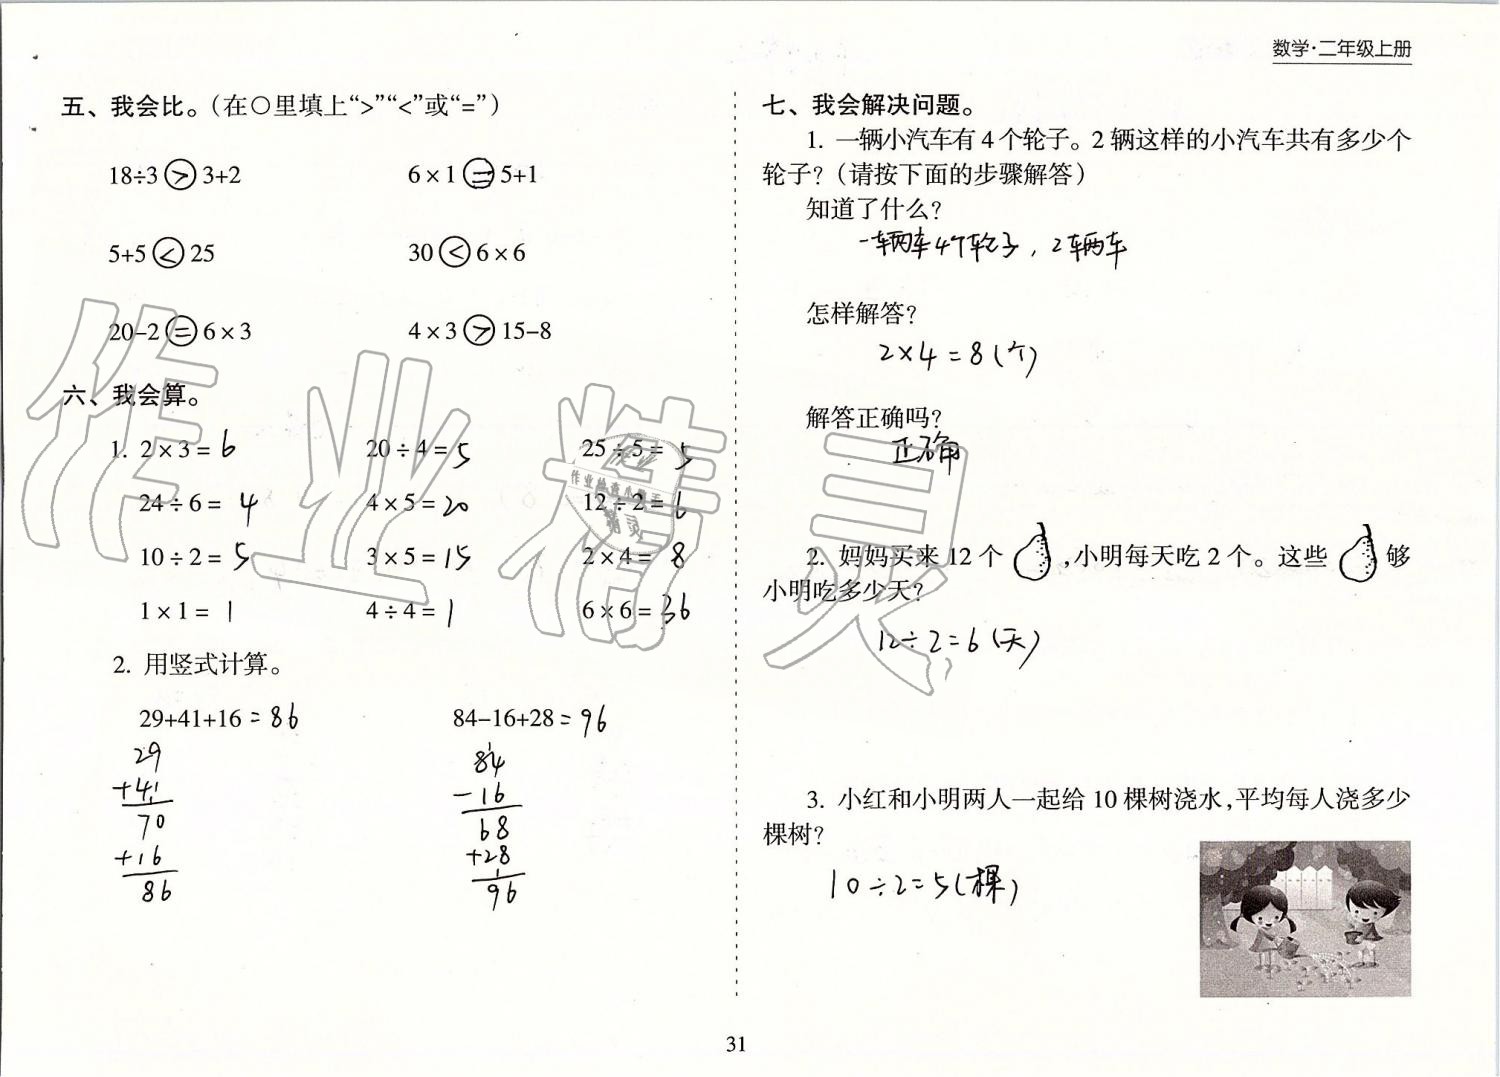 数学·二年级上册
五、我会比。(在〇里填上“>”“<”或“=”)
18÷3 > 3+2 6×1 = 5+1
5+5 < 25 30 < 6×6
20-2 = 6×3 4×3 > 15-8
六、我会算。
1. 2×3= 6 20÷4= 5 25÷5= 5
24÷6= 4 4×5= 20 12÷2= 6
10÷2= 5 3×5= 15 2×4= 8
1×1= 1 4÷4= 1 6×6= 36
2. 用竖式计算。
29+41+16 = 86 84-16+28 = 96
29
+41
70
+16
86
84
-16
68
+28
96
七、我会解决问题。
1. 一辆小汽车有4个轮子。2辆这样的小汽车共有多少个
轮子?(请按下面的步骤解答)
知道了什么?
一辆车4个轮子,2辆车
怎样解答?
2×4=8(个)
解答正确吗?
正确
2. 妈妈买来12个 ,小明每天吃2个。这些 够
小明吃多少天?
12÷2=6(天)
3. 小红和小明两人一起给10棵树浇水,平均每人浇多少
棵树?
10÷2=5(棵)
31
作业精灵
作业检查小帮手
精灵